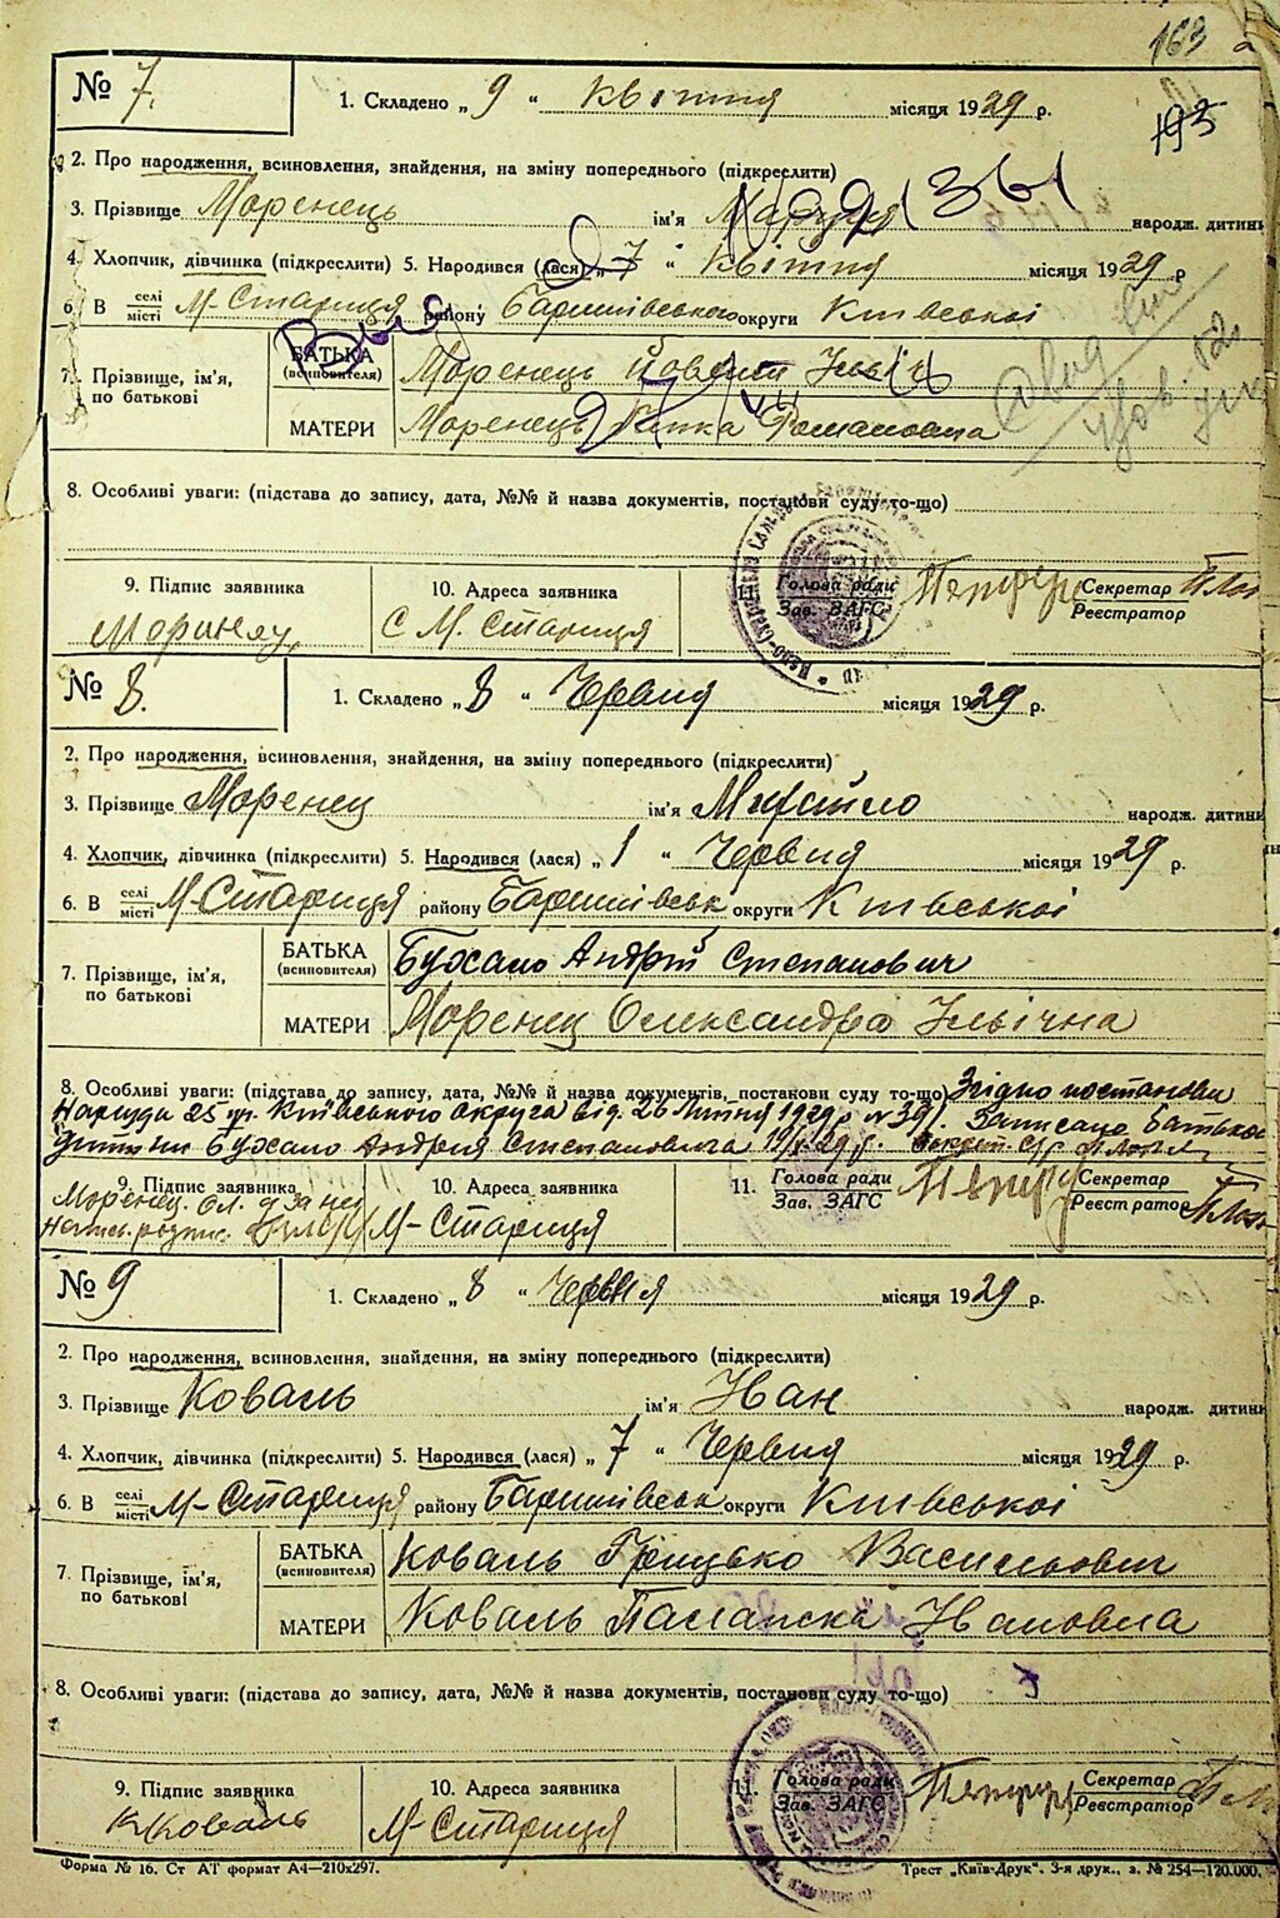 163
193
№ 7. 1. Складено „ 9 “ Квітня місяця 1929 р.
2. Про народження, всиновлення, знайдення, на зміну попереднього (підкреслити)
3. Прізвище Моренець ім'я народж. дитини
4. Хлопчик, дівчинка (підкреслити) 5. Народився (лася) „ 7 “ Квітня місяця 1929 р
6. В селі місті М-Стариця району Баришівського округи Київської
7. Прізвище, ім'я, по батькові БАТЬКА (всиновителя) Моренець
МАТЕРИ Моренець Романовна
8. Особливі уваги: (підстава до запису, дата, №№ й назва документів, постанови суду то-що)
9. Підпис заявника 10. Адреса заявника 11. Голова ради Зав. ЗАГС Секретар Реєстратор
С М. Стариця
№ 8. 1. Складено „ 8 “ Червня місяця 1929 р.
2. Про народження, всиновлення, знайдення, на зміну попереднього (підкреслити)
3. Прізвище Моренец ім'я Михайло народж. дитини
4. Хлопчик, дівчинка (підкреслити) 5. Народився (лася) „ 1 “ Червня місяця 1929 р.
6. В селі місті М-Стариця району Баришівськ округи Київської
7. Прізвище, ім'я, по батькові БАТЬКА (всиновителя) Бухало Андрій Степанович
МАТЕРИ Моренец Олександра Ільічна
8. Особливі уваги: (підстава до запису, дата, №№ й назва документів, постанови суду то-що) Згідно постанови
Нарсуда 25 Київського округа від 26 1929 р № 391. Записано батьком
дитини Бухало Андрія Степановича
9. Підпис заявника 10. Адреса заявника 11. Голова ради Зав. ЗАГС Секретар Реєстратор
Моренец. Ол. а за неї
М-Стариця
№ 9 1. Складено „ 8 “ Червня місяця 1929 р.
2. Про народження, всиновлення, знайдення, на зміну попереднього (підкреслити)
3. Прізвище Коваль ім'я Іван народж. дитини
4. Хлопчик, дівчинка (підкреслити) 5. Народився (лася) „ 7 “ Червня місяця 1929 р.
6. В селі місті М-Стариця району Баришівськ округи Київської
7. Прізвище, ім'я, по батькові БАТЬКА (всиновителя) Коваль Грицько Васильович
МАТЕРИ Коваль Палажка Івановна
8. Особливі уваги: (підстава до запису, дата, №№ й назва документів, постанови суду то-що)
9. Підпис заявника 10. Адреса заявника 11. Голова ради Зав. ЗАГС Секретар Реєстратор
Коваль М-Стариця
Форма № 16. Ст АТ формат А4—210х297. Трест „Київ-Друк“. 3-я друк., з. № 254—120.000.